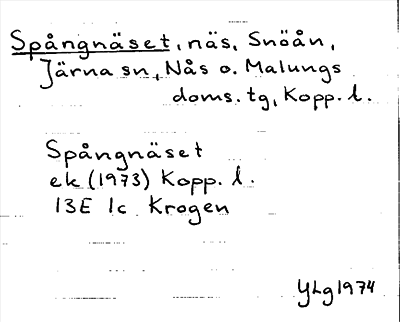 Spångnäset, näs, Snöån,
Järna sn, Nås o. Malungs
doms. tg, Kopp. l.
Spångnäset
ek (1973) Kopp. l.
13E 1c Krogen
YLg 1974